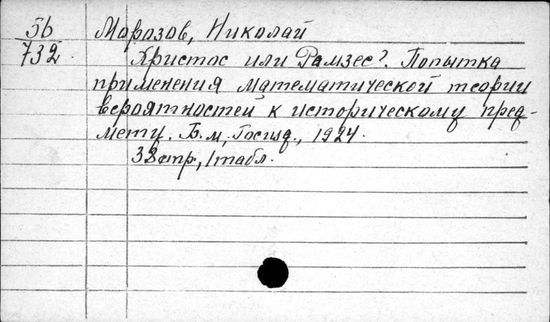 36 Морозов, Николай
732. Христос или Рамзес? Попытка
применения математической теории
вероятностей к историческому пред-
мету. Б.м, Госизд., 1924.
32 стр, 1 табл.